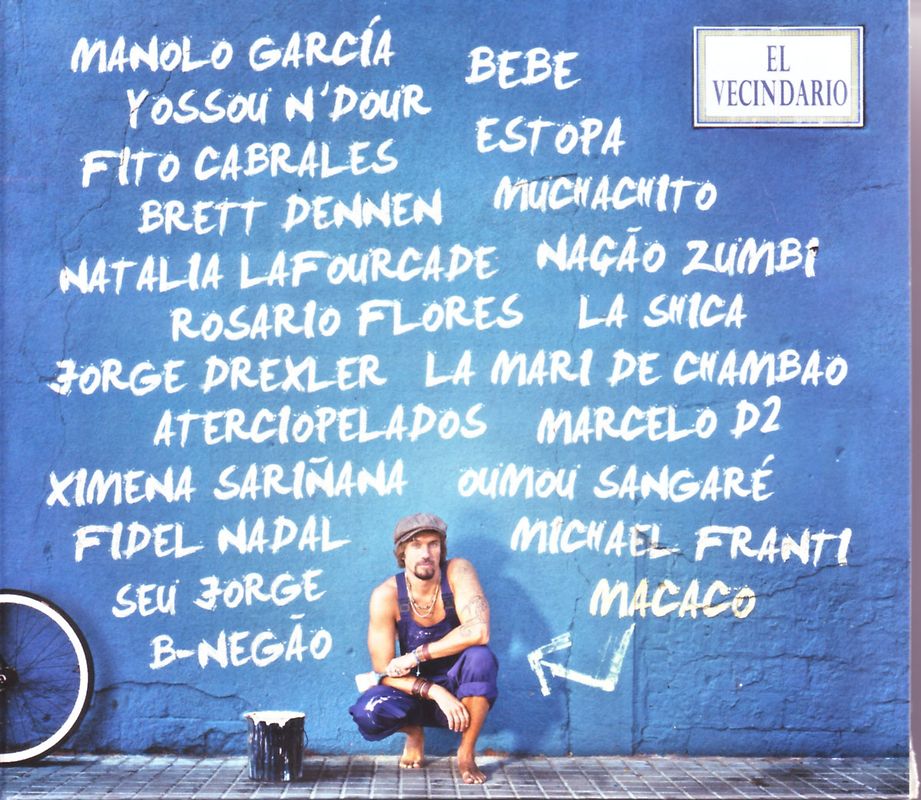 MANOLO GARCÍA
BEBE
EL
VECINDARIO
YOSSOU N'DOUR
ESTOPA
FITO CABRALES
MUCHACHITO
BRETT DENNEN
NATALIA LAFOURCADE
NAÇÃO ZUMBI
ROSARIO FLORES
LA SHICA
JORGE DREXLER
LA MARI DE CHAMBAO
ATERCIOPELADOS
MARCELO D2
XIMENA SARIÑANA
OUMOU SANGARÉ
FIDEL NADAL
MICHAEL FRANTI
SEU JORGE
MACACO
B-NEGÃO